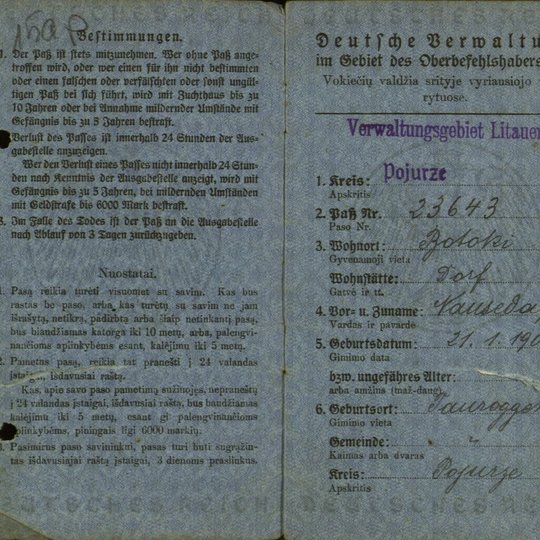 Bestimmungen.
1. Der Paß ist stets mitzunehmen. Wer ohne Paß ange-
troffen wird, oder wer einen für ihn nicht bestimmten
oder einen falschen oder verfälschten oder sonst ungül-
tigen Paß bei sich führt, wird mit Zuchthaus bis zu
10 Jahren oder bei Annahme mildernder Umstände mit
Gefängnis bis zu 5 Jahren bestraft.
Verlust des Passes ist innerhalb 24 Stunden der Aus-
gabestelle anzuzeigen.
Wer den Verlust eines Passes nicht innerhalb 24 Stun-
den nach Kenntnis der Ausgabestelle anzeigt, wird mit
Gefängnis bis zu 5 Jahren, bei mildernden Umständen
mit Geldstrafe bis 6000 Mark bestraft.
3. Im Falle des Todes ist der Paß an die Ausgabestelle
nach Ablauf von 3 Tagen zurückzugeben.
Nuostatai.
1. Pasą reikia turėti visuomet su savim. Kas bus
rastas be paso, arba kas turėtų su savim ne jam
išrašytą, netikrą, pádirbtą arba šiaip netinkantį pasą,
bus blaudžiamas katorga iki 10 metų, arba, palengvi-
nančioms aplinkybėms esant, kalėjimu iki 5 metų.
2. Pametus pasą, reikia tat pranešti į 24 valandas
įstaigai, išdavusiai raštą.
Kas, apie savo paso pametimą sužinojęs, nepraneštų
į 24 valandas įstaigai, išdavusiai raštą, bus baudžiamas
kalėjimu iki 5 metų, esant gi palengvinančioms
aplinkybėms, piningais ligi 6000 markių.
3. Pasimirus paso savininkui, pasas turi buti sugrąžin-
tas išdavusiajai raštą įstaigai, 3 dienoms praslinkus.
Deutsche Verwaltu
im Gebiet des Oberbefehlshabers
Vokiečių valdžia srityje vyriausiojo
rytuose.
Verwaltungsgebiet Litauen
1. Kreis: Pojurze
Apskritis
2. Paß Nr. 23643
Paso Nr.
3. Wohnort: Botoki
Gyvenamoji vieta
Wohnstätte: Dorf
Gatvė ir tt.
4. Vor- u. Zuname: Nauseda
Vardas ir pavardė
5. Geburtsdatum: 21. 1. 190
Gimimo data
bzw. ungefähres Alter:
arba amžina (maž-daug)
6. Geburtsort: Tauroggen
Gimimo vieta
Gemeinde: "
Kaimas arba dvaras
Kreis: Pojurze
Apskritis